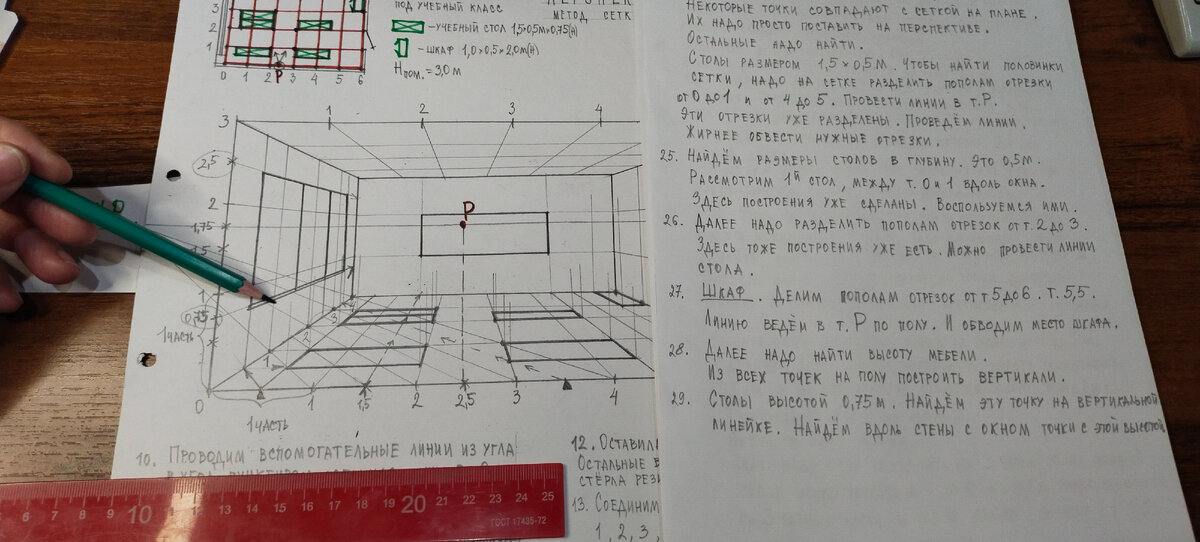 под учебный класс
метод сетк
– учебный стол 1,5×0,5м×0,75(н)
– шкаф 1,0×0,5×2,0м(н)
Hпом. = 3,0м
3
2
1
0 1 2 3 4 5 6
P
3 1 2 3 4
2,5
2
1,75
1,5
1
0,75
1 часть
P
1 2 3
0 1 1,5 2 2,5 3 4
1 часть
10. Проводим вспомогательные линии из угла
12. Оставил
Остальные в
стёрла рез
13. Соединим
1, 2, 3,
Некоторые точки совпадают с сеткой на плане.
Их надо просто поставить на перспективе.
Остальные надо найти.
Столы размером 1,5×0,5м. Чтобы найти половинки
сетки, надо на сетке разделить пополам отрезки
от 0 до 1 и от 4 до 5. Провести линии в т.Р.
Эти отрезки уже разделены. Проведём линии.
Жирнее обвести нужные отрезки.
25. Найдём размеры столов в глубину. Это 0,5м.
Рассмотрим 1й стол, между т. 0 и 1 вдоль окна.
Здесь построения уже сделаны. Воспользуемся ими.
26. Далее надо разделить пополам отрезок от т. 2 до 3.
Здесь тоже построения уже есть. Можно провести линии
стола.
27. Шкаф. Делим пополам отрезок от т 5 до 6. т. 5,5.
Линию ведём в т. Р по полу. И обводим место шкафа.
28. Далее надо найти высоту мебели.
Из всех точек на полу построить вертикали.
29. Столы высотой 0,75м. Найдём эту точку на вертикальной
линейке. Найдём вдоль стены с окном точки с этой высотой
5 6 7 8 9 10 11 12 13 14 15 16 17 18 19 20 21 22 23 24 25
ГОСТ 17435-72